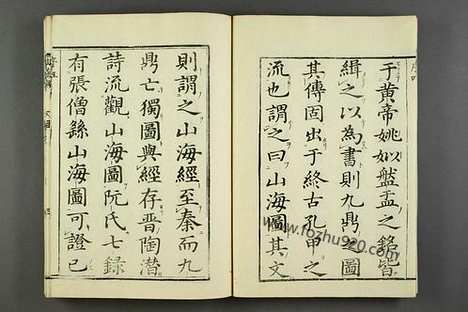 于黄帝姚姒盤盂之銘皆
緝之以為書則九鼎之圖
其傳固出于終古孔甲之
流也謂之曰山海圖其文
則謂之山海經至秦而九
鼎亡獨圖與經存晋陶潜
詩流觀山海圖阮氏七録
有張僧繇山海圖可證已
www.fozhu920.com